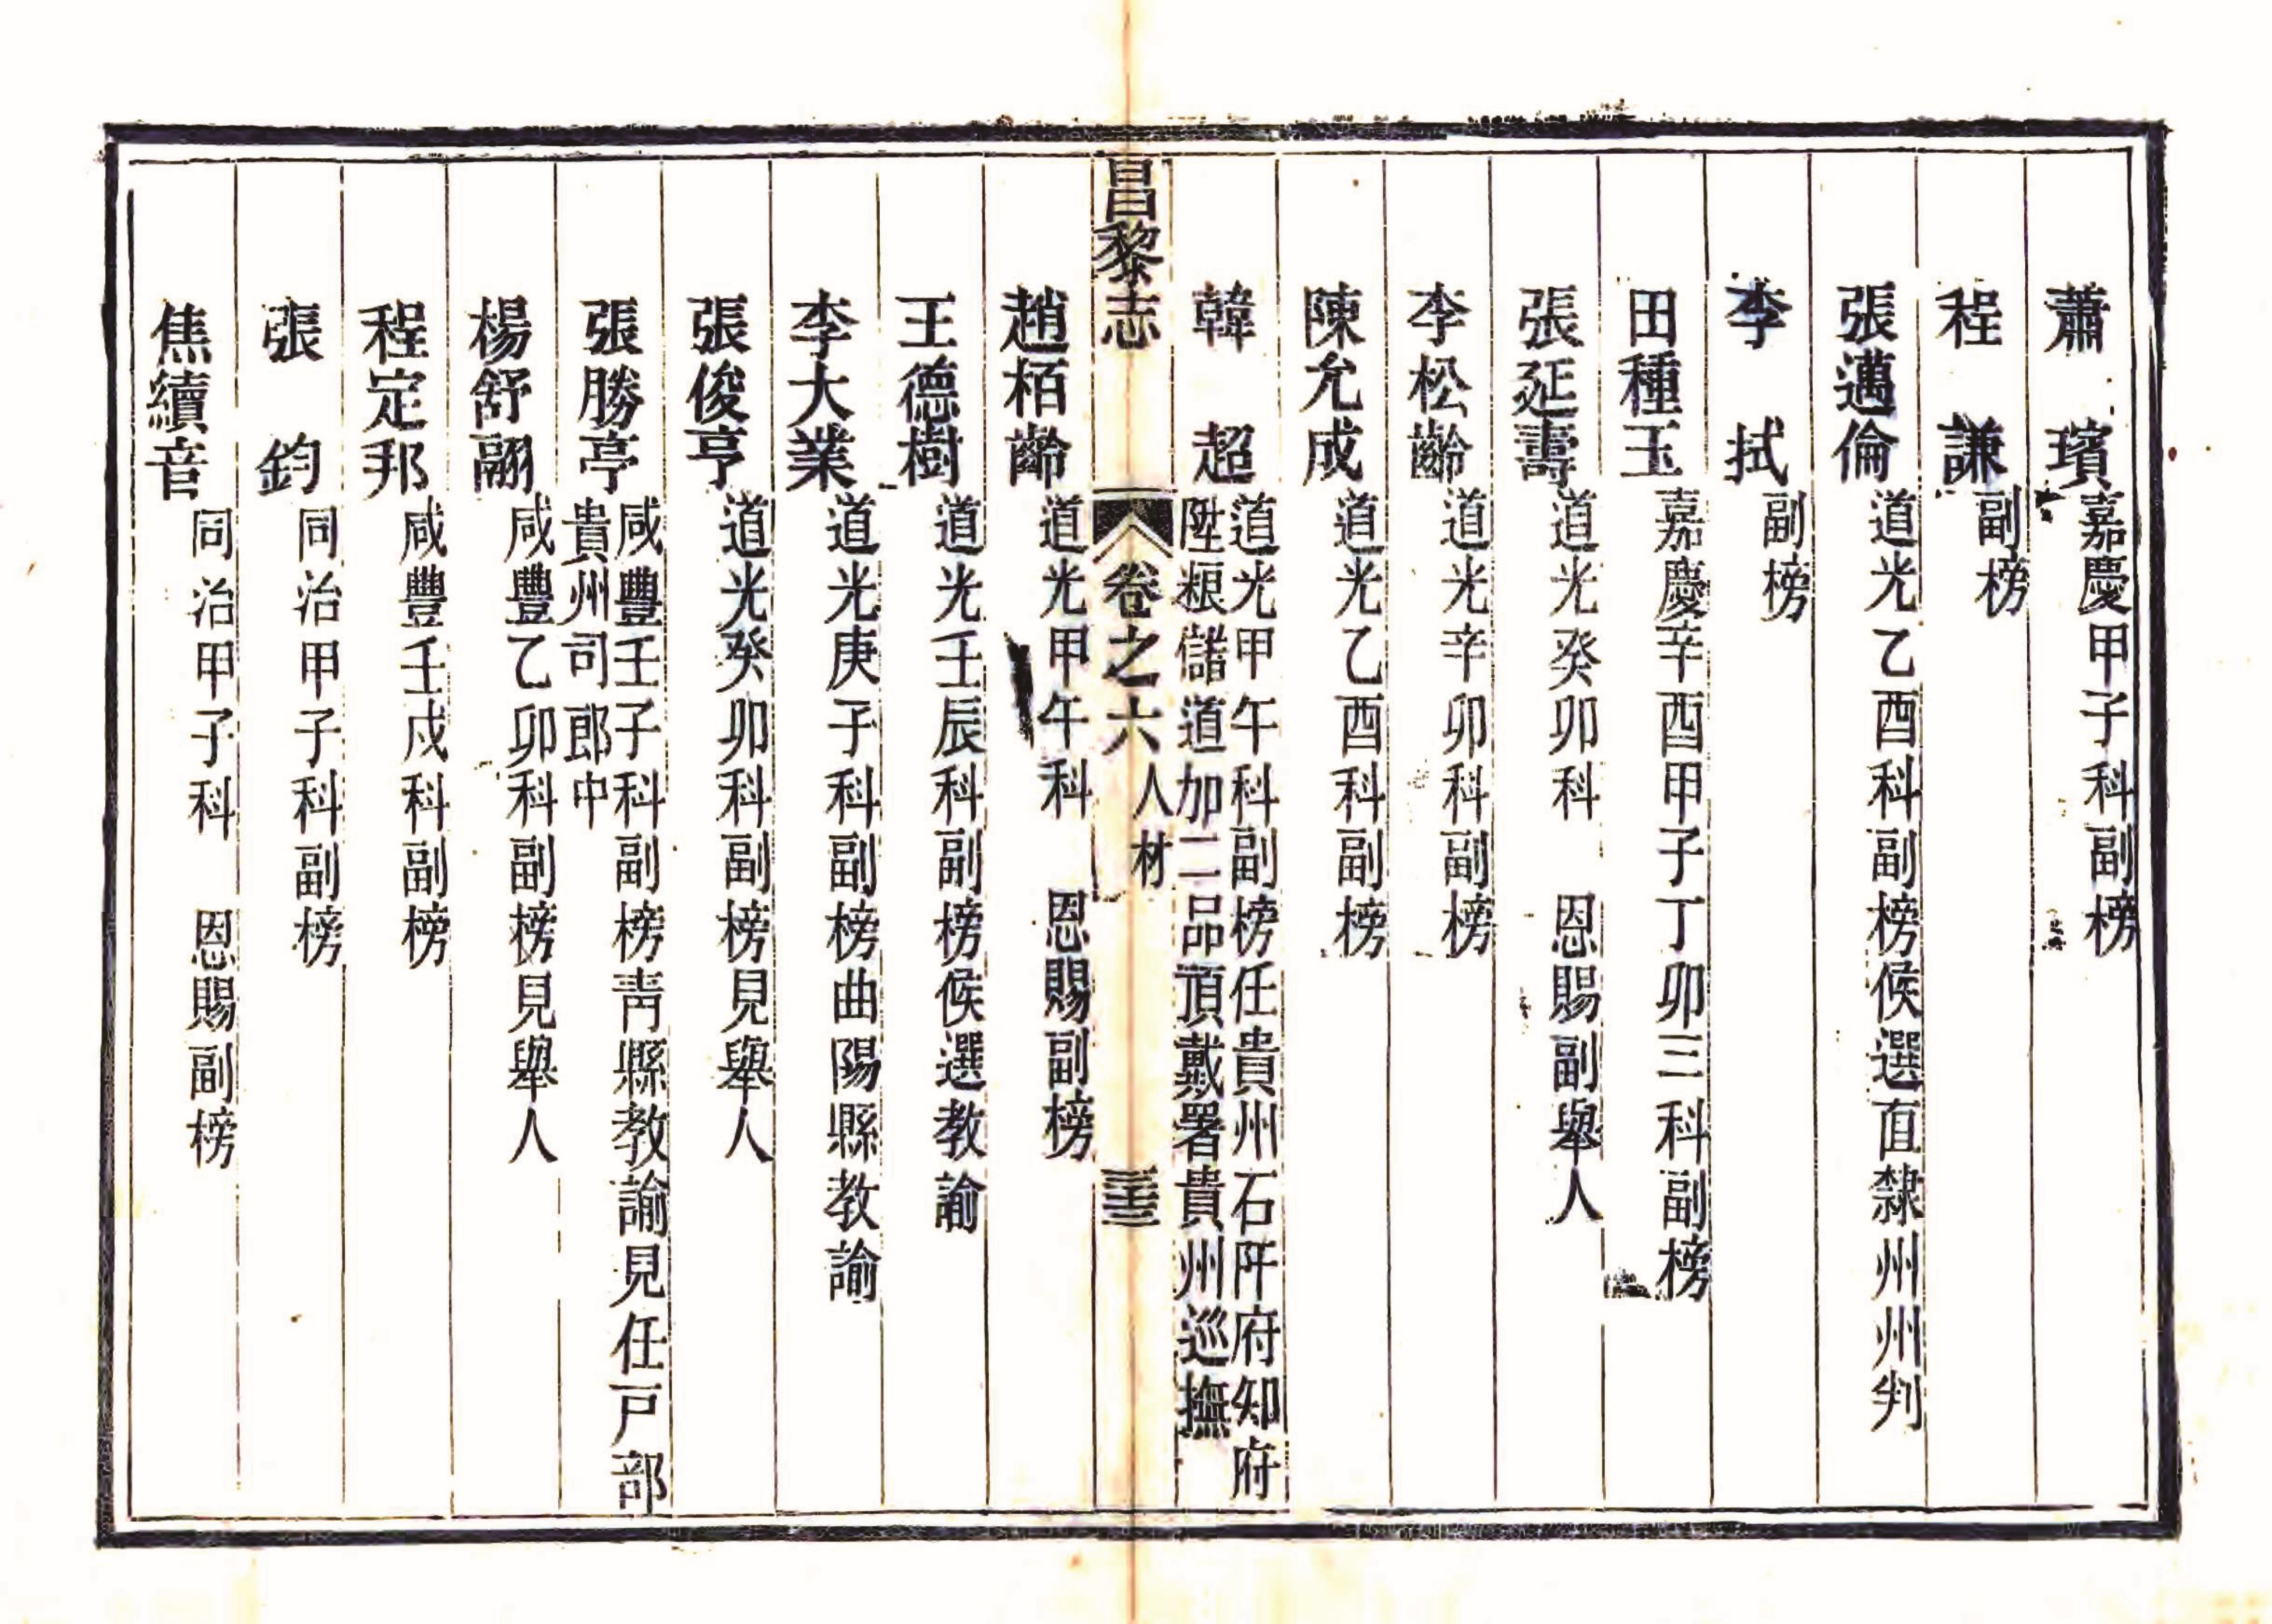 蕭 璸 嘉慶甲子科副榜
程 謙 副榜
張邁倫 道光乙酉科副榜候選直隸州州判
李 拭 副榜
田種玉 嘉慶辛酉甲子丁卯三科副榜
張延壽 道光癸卯科 恩賜副舉人
李松齡 道光辛卯科副榜
陳允成 道光乙酉科副榜
韓 超 道光甲午科副榜任貴州石阡府知府
陞糧儲道加二品頂戴署貴州巡撫
昌黎志 卷之六 人材
趙栢齡 道光甲午科 恩賜副榜
王德樹 道光壬辰科副榜候選教諭
李大業 道光庚子科副榜曲陽縣教諭
張俊亨 道光癸卯科副榜見舉人
張勝亭 咸豐壬子科副榜青縣教諭見任戸部
貴州司郎中
楊舒翮 咸豐乙卯科副榜見舉人
程定邦 咸豐壬戌科副榜
張 鈞 同治甲子科副榜
焦續音 同治甲子科 恩賜副榜